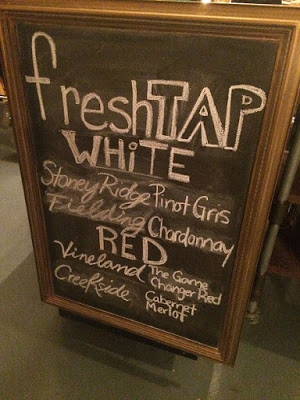 freshTAP
WHiTE
Stoney Ridge Pinot Gris
Fielding Chardonnay
RED
Vineland The Game Changer Red
Creekside Cabernet Merlot